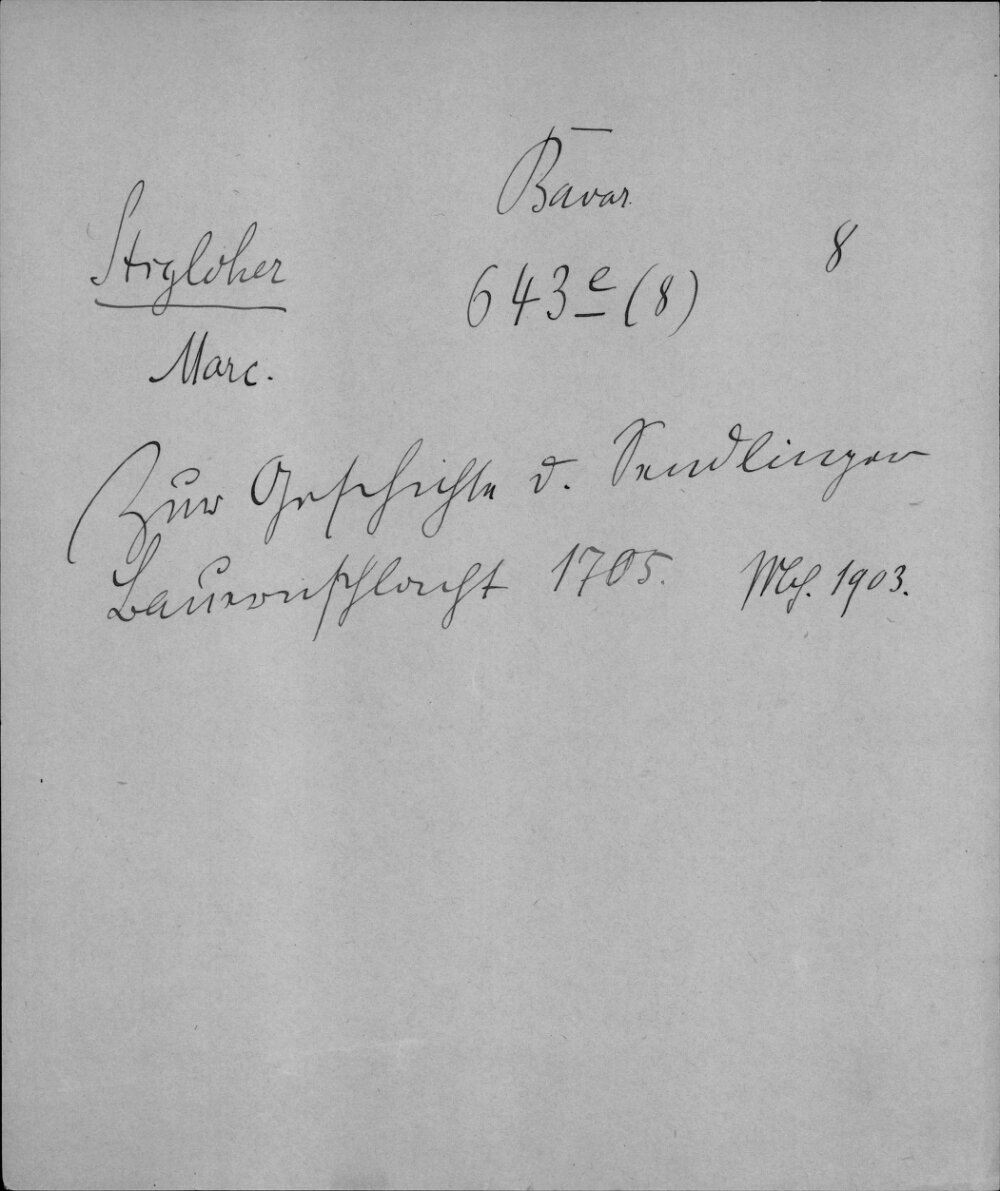 Bavar.
Stigloher
643 e (8)
8
Marc.
Zur Geschichte d. Sendlinger
Bauernschlacht 1705. Mch. 1903.